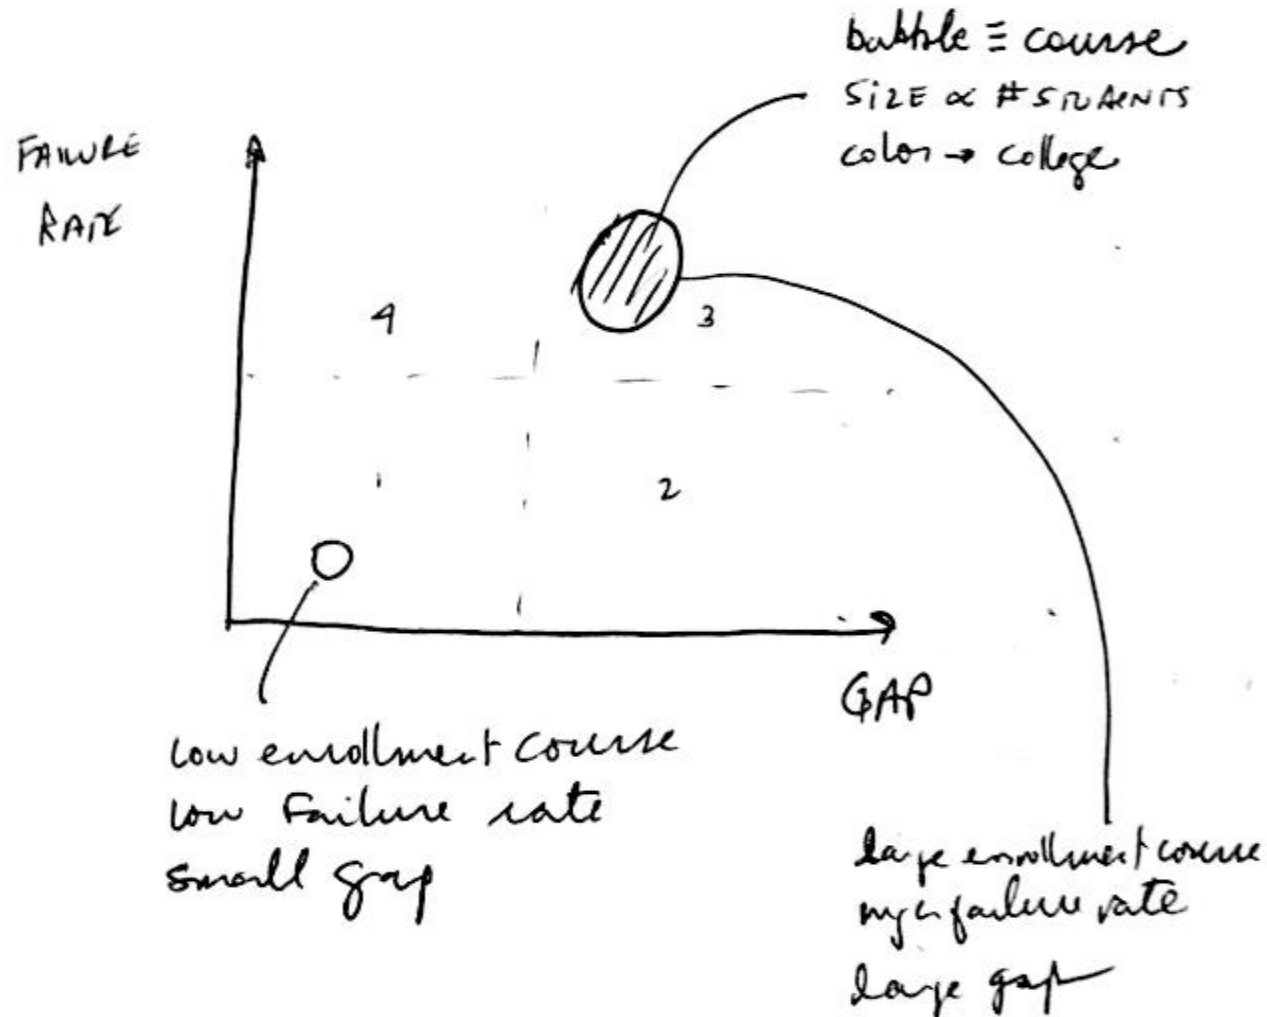 bubble ≡ course
SIZE ∝ # STUDENTS
color → college
FAILURE
RATE
4
3
1
2
GAP
low enrollment course
low Failure rate
small gap
large enrollment course
high failure rate
large gap